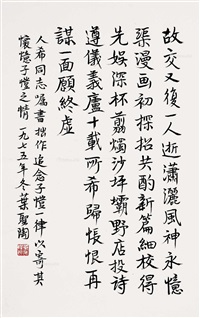 故交又復一人逝瀟灑風神永憶
渠漫画初探招共酌新篇細校得
先娛深杯剪燭沙坪壩野店投詩
遵儀義廬十載所希歸悵恨再
謀一面願終虛
人希同志囑書拙作追念子愷一律以寄其
懷憶子愷之情一九七五年冬葉聖陶